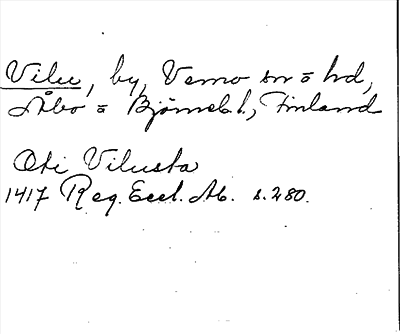 Vilu, by, Vemo sn o hd,
Åbo o Björneb.l., Finland
Oti Vilusta
1417 Reg. Eccl. Ab. s. 280.